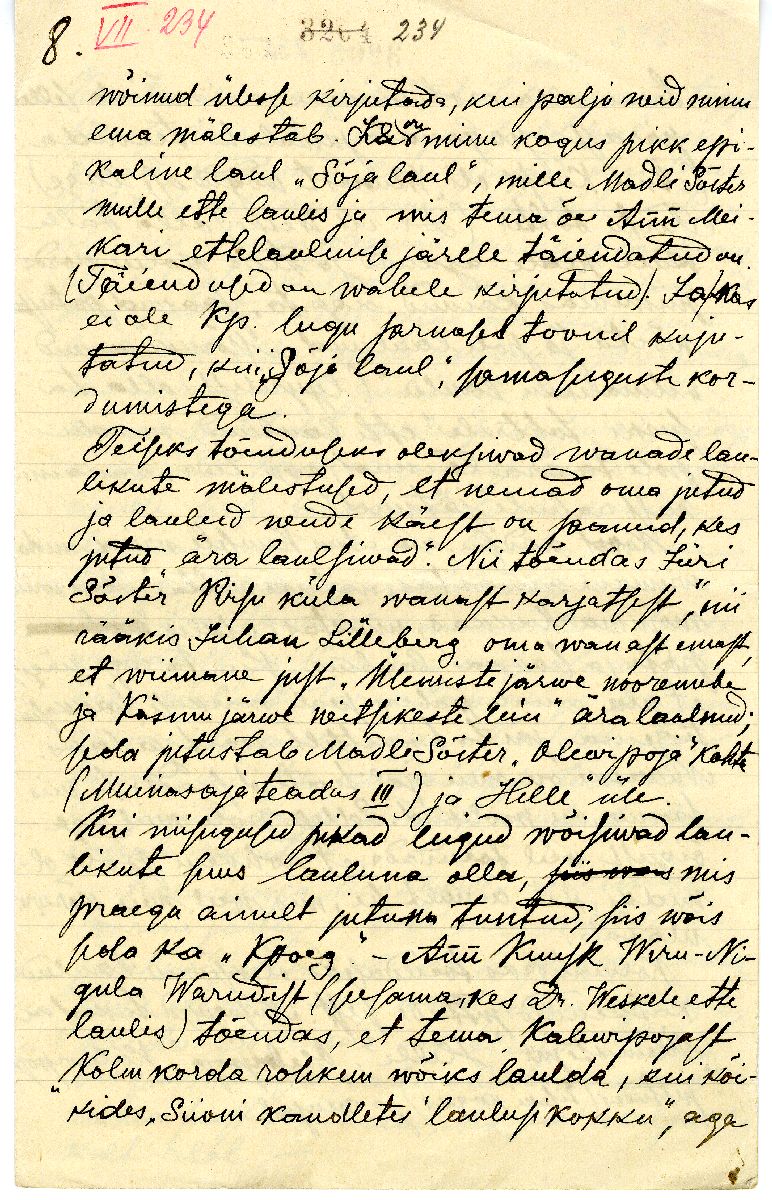 8. VII 234 3204 234
wõinud ülesse kirjutada, kui palju neid minu
ema mälestab. Ka on minu kogus pikk epi-
kaline laul „Sõja laul“, mille Madli Sõster
mulle ette laulis ja mis tema õe Ann Mei-
kari ettelaulmise järele täiendatud on
(Täiendused on wahele kirjutatud). Ja kas
ei ole Kp. lugu sarnases toonil kirju-
tatud, kui „Sõja laul“, samasuguste kor-
dumistega.
Teiseks tõenduseks oleksiwad wanade lau-
likute mälestused, et nemad oma jutud
ja laulud nende käest on saanud, kes
jutud „ära laulsiwad“. Nii tõendas Jüri
Sõster „Pihu küla wanast karjatsest“, nii
rääkis Juhan Lilleberg oma wanast emast,
et wiimane just „Ülemiste järwe nooremehe
ja Käsmu järwe neitsikeste leiu“ ära laulnud;
seda jutustab Madli Sõster „Olewipoja“ kohta
(Muinasaja teadus III) ja „Helle“ üle.
Kui niisugused pikad lugud wõisiwad lau-
likute suus lauluna olla, siis wois mis
praegu ainult jutuna tuntud, siis wõis
seda ka „Kpoeg“ – Ann Kuusk Wiru-Ni-
gula Warudist (seesama, kes Dr. Weskele ette
laulis) tõendas, et tema Kalewipojast
„Kolm korda rohkem wõiks laulda, kui kõi-
kides „Siioni kandletes“ laulusi kokku“, aga